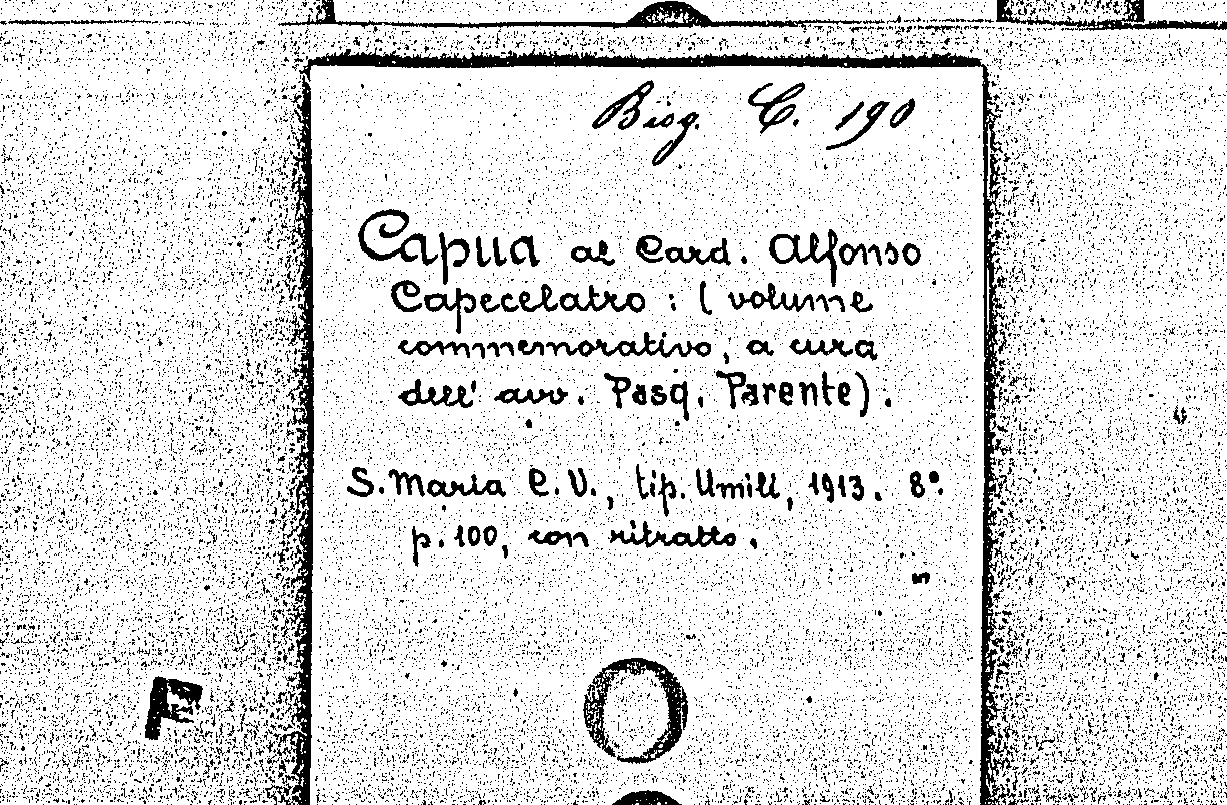 Biog. C. 190
Capua al Card. Alfonso
Capecelatro : ( volume
commemorativo, a cura
dell' avv. Pasq. Parente).
S. Maria C. V., tip. Umili, 1913. 8°.
p. 100, con ritratto.
F